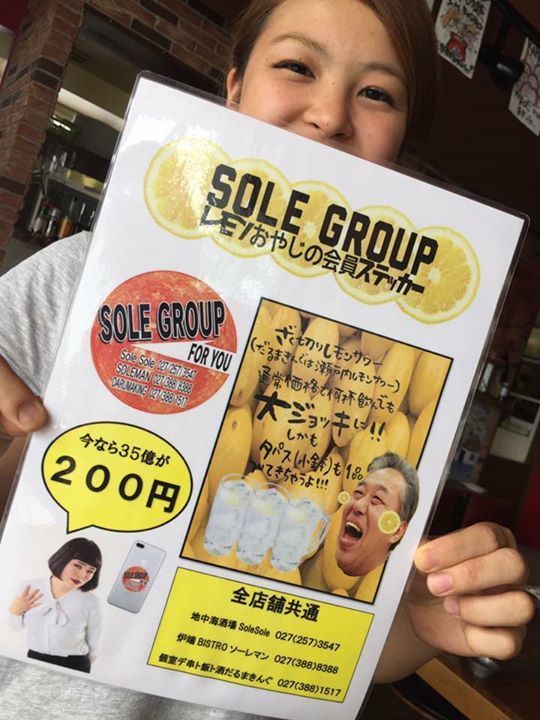 SOLE GROUP
レモンおやじの会員ステッカー
SOLE GROUP
FOR YOU
Sole Sole 027(257)3547
SOLEMAN 027(388)8388
DARUMAKING 027(388)1517
ざく切りレモンサワー
(だるまきんぐは瀬戸内レモンサワー)
通常価格で何杯飲んでも
大ジョッキに!!
しかも
タパス(小鉢)も1品
ついてきちゃうよ!!!
今なら35億が
200円
SOLE GROUP
全店舗共通
地中海酒場 SoleSole 027(257)3547
炉端 BISTRO ソーレマン 027(388)8388
個室デ串ト飯ト酒だるまきんぐ 027(388)1517